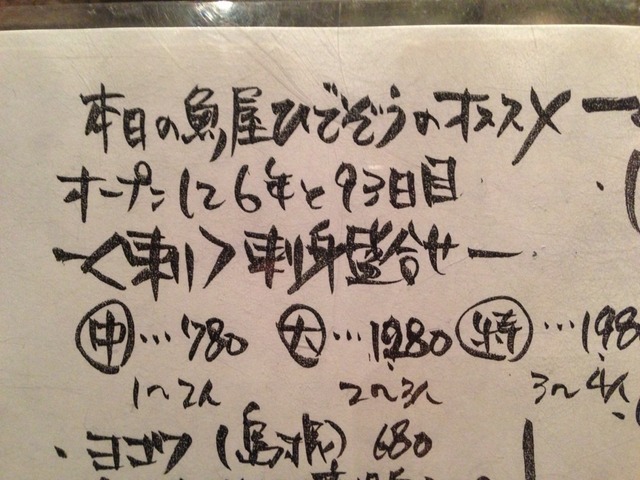 本日の魚屋ひでぞうのオススメ
オープンして6年と93日目
〈刺〉刺身盛合せ
中…780 大…1280 特…198
1〜2人 2〜3人 3〜4人
・ヨコワ(島根)680